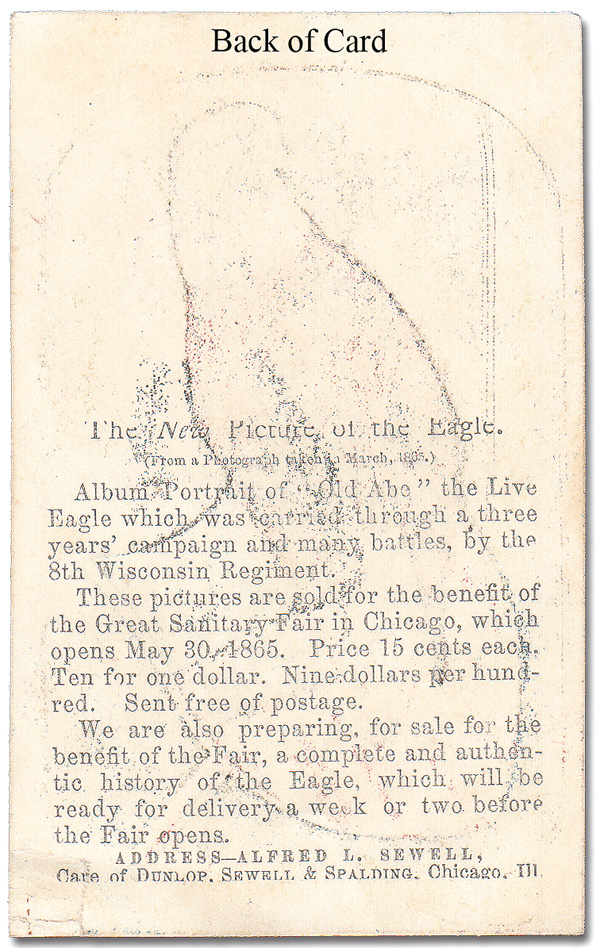 Back of Card
The New Picture of the Eagle.
(From a Photograph taken in March, 1865.)
Album Portrait of "Old Abe" the Live
Eagle which was carried through a three
years' campaign and many battles, by the
8th Wisconsin Regiment.
These pictures are sold for the benefit of
the Great Sanitary Fair in Chicago, which
opens May 30, 1865. Price 15 cents each.
Ten for one dollar. Nine dollars per hund-
red. Sent free of postage.
We are also preparing, for sale for the
benefit of the Fair, a complete and authen-
tic history of the Eagle, which will be
ready for delivery a week or two before
the Fair opens.
ADDRESS—ALFRED L. SEWELL,
Care of DUNLOP, SEWELL & SPALDING, Chicago, Ill